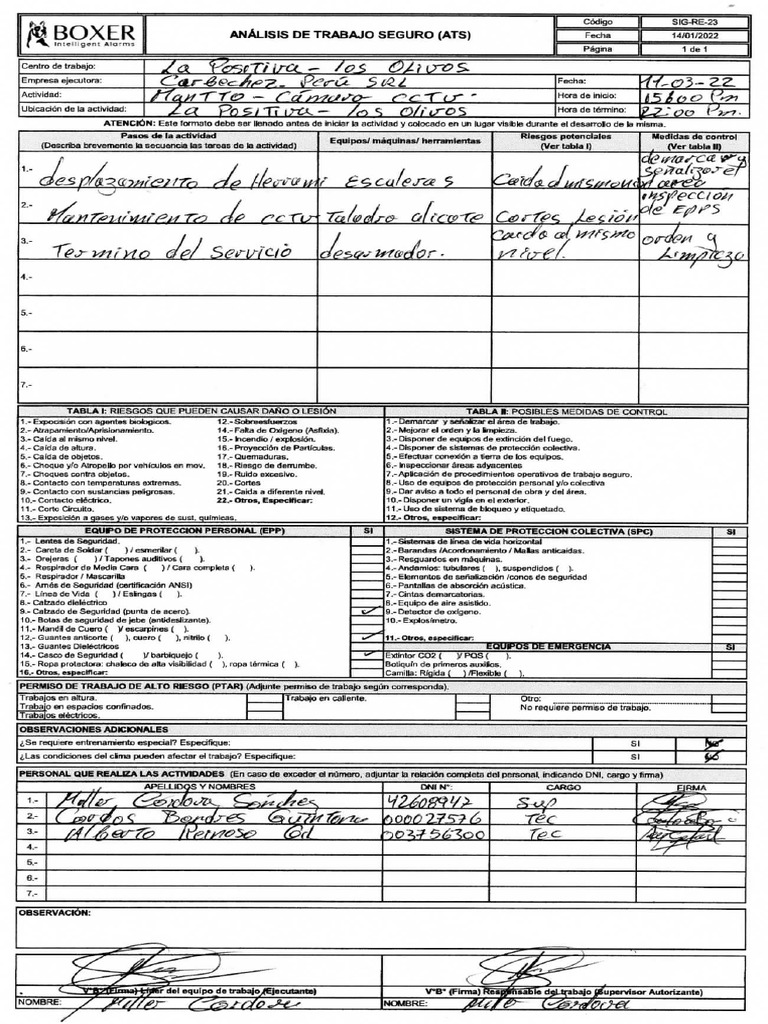 BOXER
Intelligent Alarms
ANÁLISIS DE TRABAJO SEGURO (ATS)
Código SIG-RE-23
Fecha 14/01/2022
Página 1 de 1
Centro de trabajo: La Positiva - los Olivos
Empresa ejecutora: Carbechez Perú SRL Fecha: 11-03-22
Actividad: Mantto - Cámara cctv. Hora de inicio: 15:00 Pm
Ubicación de la actividad: La Positiva - los Olivos Hora de término: 22:00 Pm.
ATENCIÓN: Este formato debe ser llenado antes de iniciar la actividad y colocado en un lugar visible durante el desarrollo de la misma.
Pasos de la actividad Equipos/ máquinas/ herramientas Riesgos potenciales Medidas de control
(Describa brevemente la secuencia las tareas de la actividad) (Ver tabla I) (Ver tabla II)
1.- desplazamiento de Herrami Escaleras Caida al mismo demarcar y señalizar el area
2.- Mantenimiento de cctv Taladro alicate Cortes Lesión inspeccion de EPPS
3.- Termino del Servicio desarmador. caida al mismo nivel. orden y Limpieza
4.-
5.-
6.-
7.-
TABLA I: RIESGOS QUE PUEDEN CAUSAR DAÑO O LESIÓN TABLA II: POSIBLES MEDIDAS DE CONTROL
1.- Exposición con agentes biologicos. 12.-Sobreesfuerzos 1.- Demarcar y señalizar el área de trabajo.
2.- Atrapamiento/Aprisionamiento. 14.-Falta de Oxígeno (Asfixia). 2.- Mejorar el orden y la limpieza.
3.- Caída al mismo nivel. 15.-Incendio / explosión. 3.- Disponer de equipos de extinción del fuego.
4.- Caída de altura. 16.-Proyección de Partículas. 4.- Disponer de sistemas de protección colectiva.
5.- Caída de objetos. 17.-Quemaduras. 5.- Efectuar conexión a tierra de los equipos.
6.- Choque y/o Atropello por vehículos en mov. 18.- Riesgo de derrumbe. 6.- Inspeccionar áreas adyacentes
7.- Choques contra objetos. 19.- Ruido excesivo. 7.- Aplicación de procedimientos operativos de trabajo seguro.
8.- Contacto con temperaturas extremas. 20.- Cortes 8.- Uso de equipos de protección personal y/o colectiva
9.- Contacto con sustancias peligrosas. 21.- Caida a diferente nivel. 9.- Dar aviso a todo el personal de obra y del área.
10.- Contacto eléctrico. 22.- Otros, Especificar: 10.- Disponer un vigía en el exterior.
11.- Corte Circuito. 11.- Uso de sistema de bloqueo y etiquetado.
13.- Exposición a gases y/o vapores de sust, químicas. 12.- Otros, especificar:
EQUIPO DE PROTECCION PERSONAL (EPP) SI SISTEMA DE PROTECCION COLECTIVA (SPC) SI
1.- Lentes de Seguridad. 1.- Sistemas de línea de vida horizontal
2.- Careta de Soldar ( ) / esmerilar ( ). 2.- Barandas /Acordonamiento / Mallas anticaidas.
3.- Orejeras ( ) / Tapones auditivos ( ). 3.- Resguardos en máquinas.
4.- Respirador de Media Cara ( ) / Cara completa ( ). 4.- Andamios: tubulares ( ), suspendidos ( ).
5.- Respirador / Mascarilla 5.- Elementos de señalización /conos de seguridad
6.- Arnés de Seguridad (certificación ANSI) 6.- Pantallas de absorción acústica.
7.- Línea de Vida ( ) / Eslingas ( ). 7.- Cintas demarcatorias.
8.- Calzado dieléctrico 8.- Equipo de aire asistido.
9.- Calzado de Seguridad (punta de acero). ✓ 9.- Detector de oxígeno.
10.- Botas de seguridad de jebe (antideslizante). 10.- Explosímetro.
11.- Mandil de Cuero ( )/ escarpines ( ).
12.- Guantes anticorte ( ), cuero ( ), nitrilo ( ). ✓ 11.- Otros, especificar:
13.- Guantes Dieléctricos EQUIPOS DE EMERGENCIA SI
14.- Casco de Seguridad ( )/ barbiquejo ( ). ✓ Extintor CO2 ( )/ PQS ( ).
15.- Ropa protectora: chaleco de alta visibilidad ( ), ropa térmica ( ). Botiquín de primeros auxilios.
16.- Otros, especificar: Camilla: Rígida ( ) /Flexible ( ).
PERMISO DE TRABAJO DE ALTO RIESGO (PTAR) (Adjunte permiso de trabajo según corresponda).
Trabajos en altura. Trabajo en caliente. Otro:
Trabajo en espacios confinados. No requiere permiso de trabajo.
Trabajos eléctricos.
OBSERVACIONES ADICIONALES
¿Se requiere entrenamiento especial? Especifique: SI
¿Las condiciones del clima pueden afectar el trabajo? Especifique: SI
PERSONAL QUE REALIZA LAS ACTIVIDADES (En caso de exceder el número, adjuntar la relación completa del personal, indicando DNI, cargo y firma)
APELLIDOS Y NOMBRES DNI N°: CARGO FIRMA
1.- Miller Cordova Sánchez 42608947 Sup
2.- Carlos Bendres Quintana 000027576 Tec
3.- Alberto Reinoso Gil 003756300 Tec
4.-
5.-
6.-
7.-
OBSERVACIÓN:
V°B° (Firma) Líder del equipo de trabajo (Ejecutante) V°B° (Firma) Responsable del trabajo (Supervisor Autorizante)
NOMBRE: Miller Cordova NOMBRE: Miller Cordova